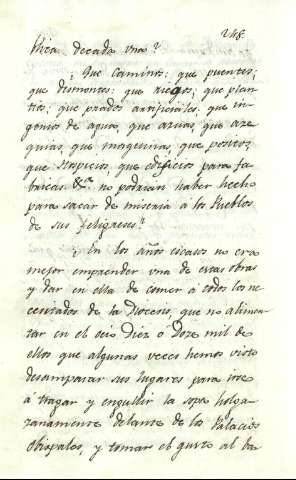 248.
blica decada una?
¿Que caminos: que puentes;
que desmontes: que riegos; que plan-
tios; que prados artificiales: que in-
genio de agua, que azuas, que aze-
quias, que maquinas; que puertos;
que Hospicios, que edificios para fa-
bricas &a no podrian haber hecho
para sacar de miseria a los Pueblos
de sus feligreses?
¿En los años escasos no era
mejor emprender una de estas obras
y dar en ella de comer á todos los ne-
cesitados de la Diocesis, que no alimen-
tar en el ocio Diez ó Doze mil de
ellos que algunas veces hemos visto
desamparar sus lugares para irse
á tragar y engullir la sopa holga-
zanamente delante de los Palacios
Obispales, y tomar el gusto al ba-